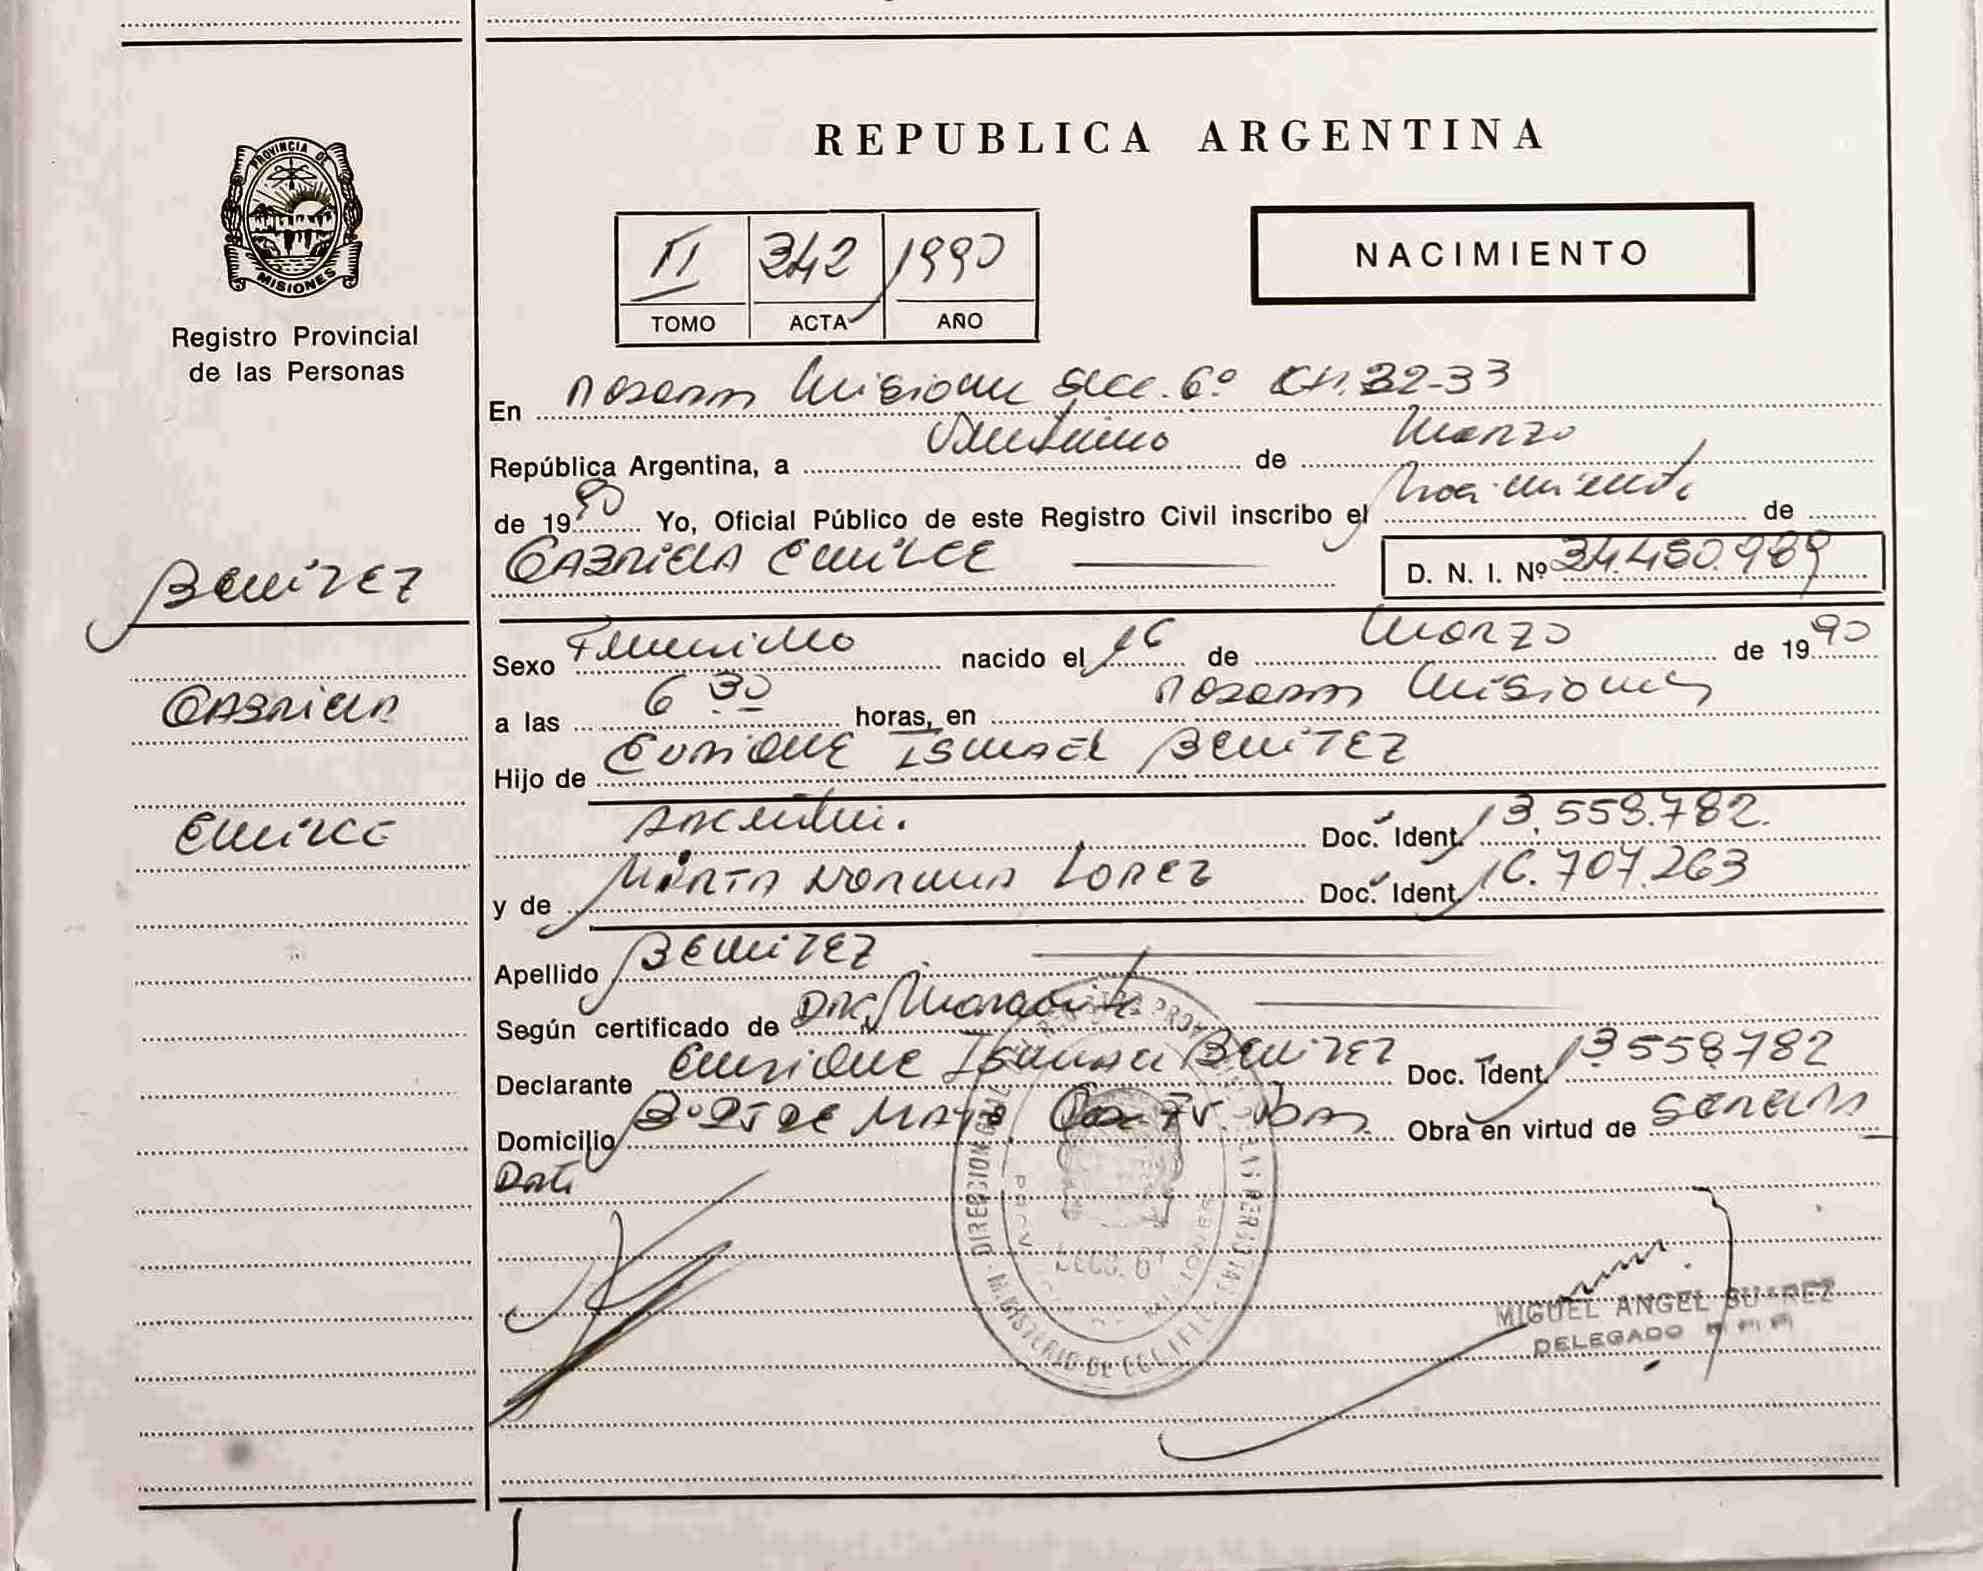 PROVINCIA DE
MISIONES
Registro Provincial
de las Personas
BENITEZ
GABRIELA
EMILCE
REPUBLICA ARGENTINA
II 342 1990
TOMO ACTA AÑO
NACIMIENTO
En Posadas Misiones Secc. 6º CH. 32-33
República Argentina, a Veintiuno de Marzo
de 1990 Yo, Oficial Público de este Registro Civil inscribo el Nacimiento de
GABRIELA EMILCE D. N. I. Nº 34.450.989
Sexo Femenino nacido el 16 de Marzo de 1990
a las 6 30 horas, en Posadas Misiones
Hijo de ENRIQUE ISMAEL BENITEZ
Doc. Ident. 13.558.782.
y de MIRTA NORMA LOPEZ Doc. Ident. 16.707.263
Apellido BENITEZ
Según certificado de DRA.
Declarante ENRIQUE ISMAEL BENITEZ Doc. Ident. 13558782
Domicilio Bº 25 DE MAYO Obra en virtud de SER ELLA
DIRECCION
MIGUEL ANGEL SUAREZ
DELEGADO